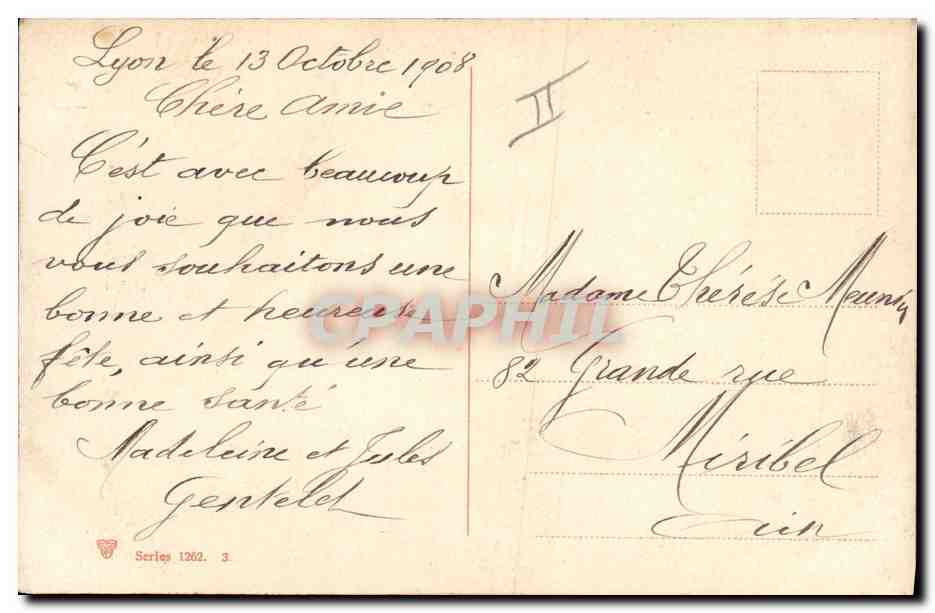 Lyon le 13 Octobre 1908
Chère Amie
C'est avec beaucoup
de joie que nous
vous souhaitons une
bonne et heureuse
fête, ainsi qu'une
bonne santé
Madeleine et Jules
II
Madame Thérèse
82 Grande rue
Miribel
Ain
CPAPHIL
Series 1262. 3